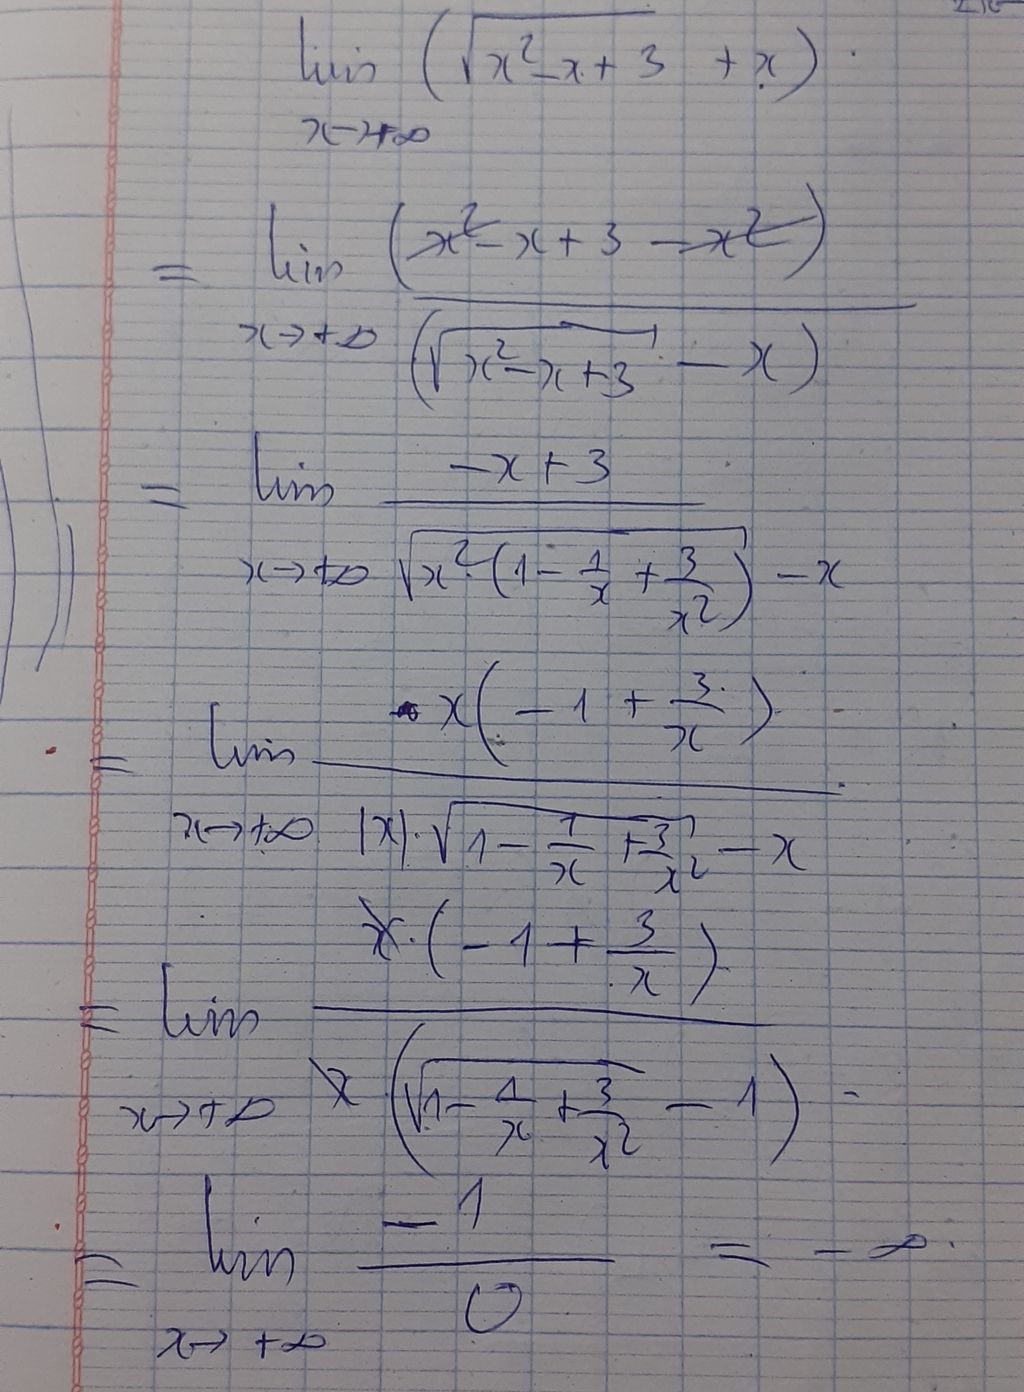 lim (√(x²-x+3) + x).
x→+∞
= lim (x²-x+3-x²)
x→+∞ (√(x²-x+3) - x)
= lim -x+3
x→+∞ √(x²(1-1/x+3/x²)) - x
= lim x(-1+3/x)
x→+∞ |x|.√(1-1/x+3/x²) - x
= lim x.(-1+3/x)
x→+∞ x(√(1-1/x+3/x²) - 1)
= lim -1/0 = -∞.
x→+∞